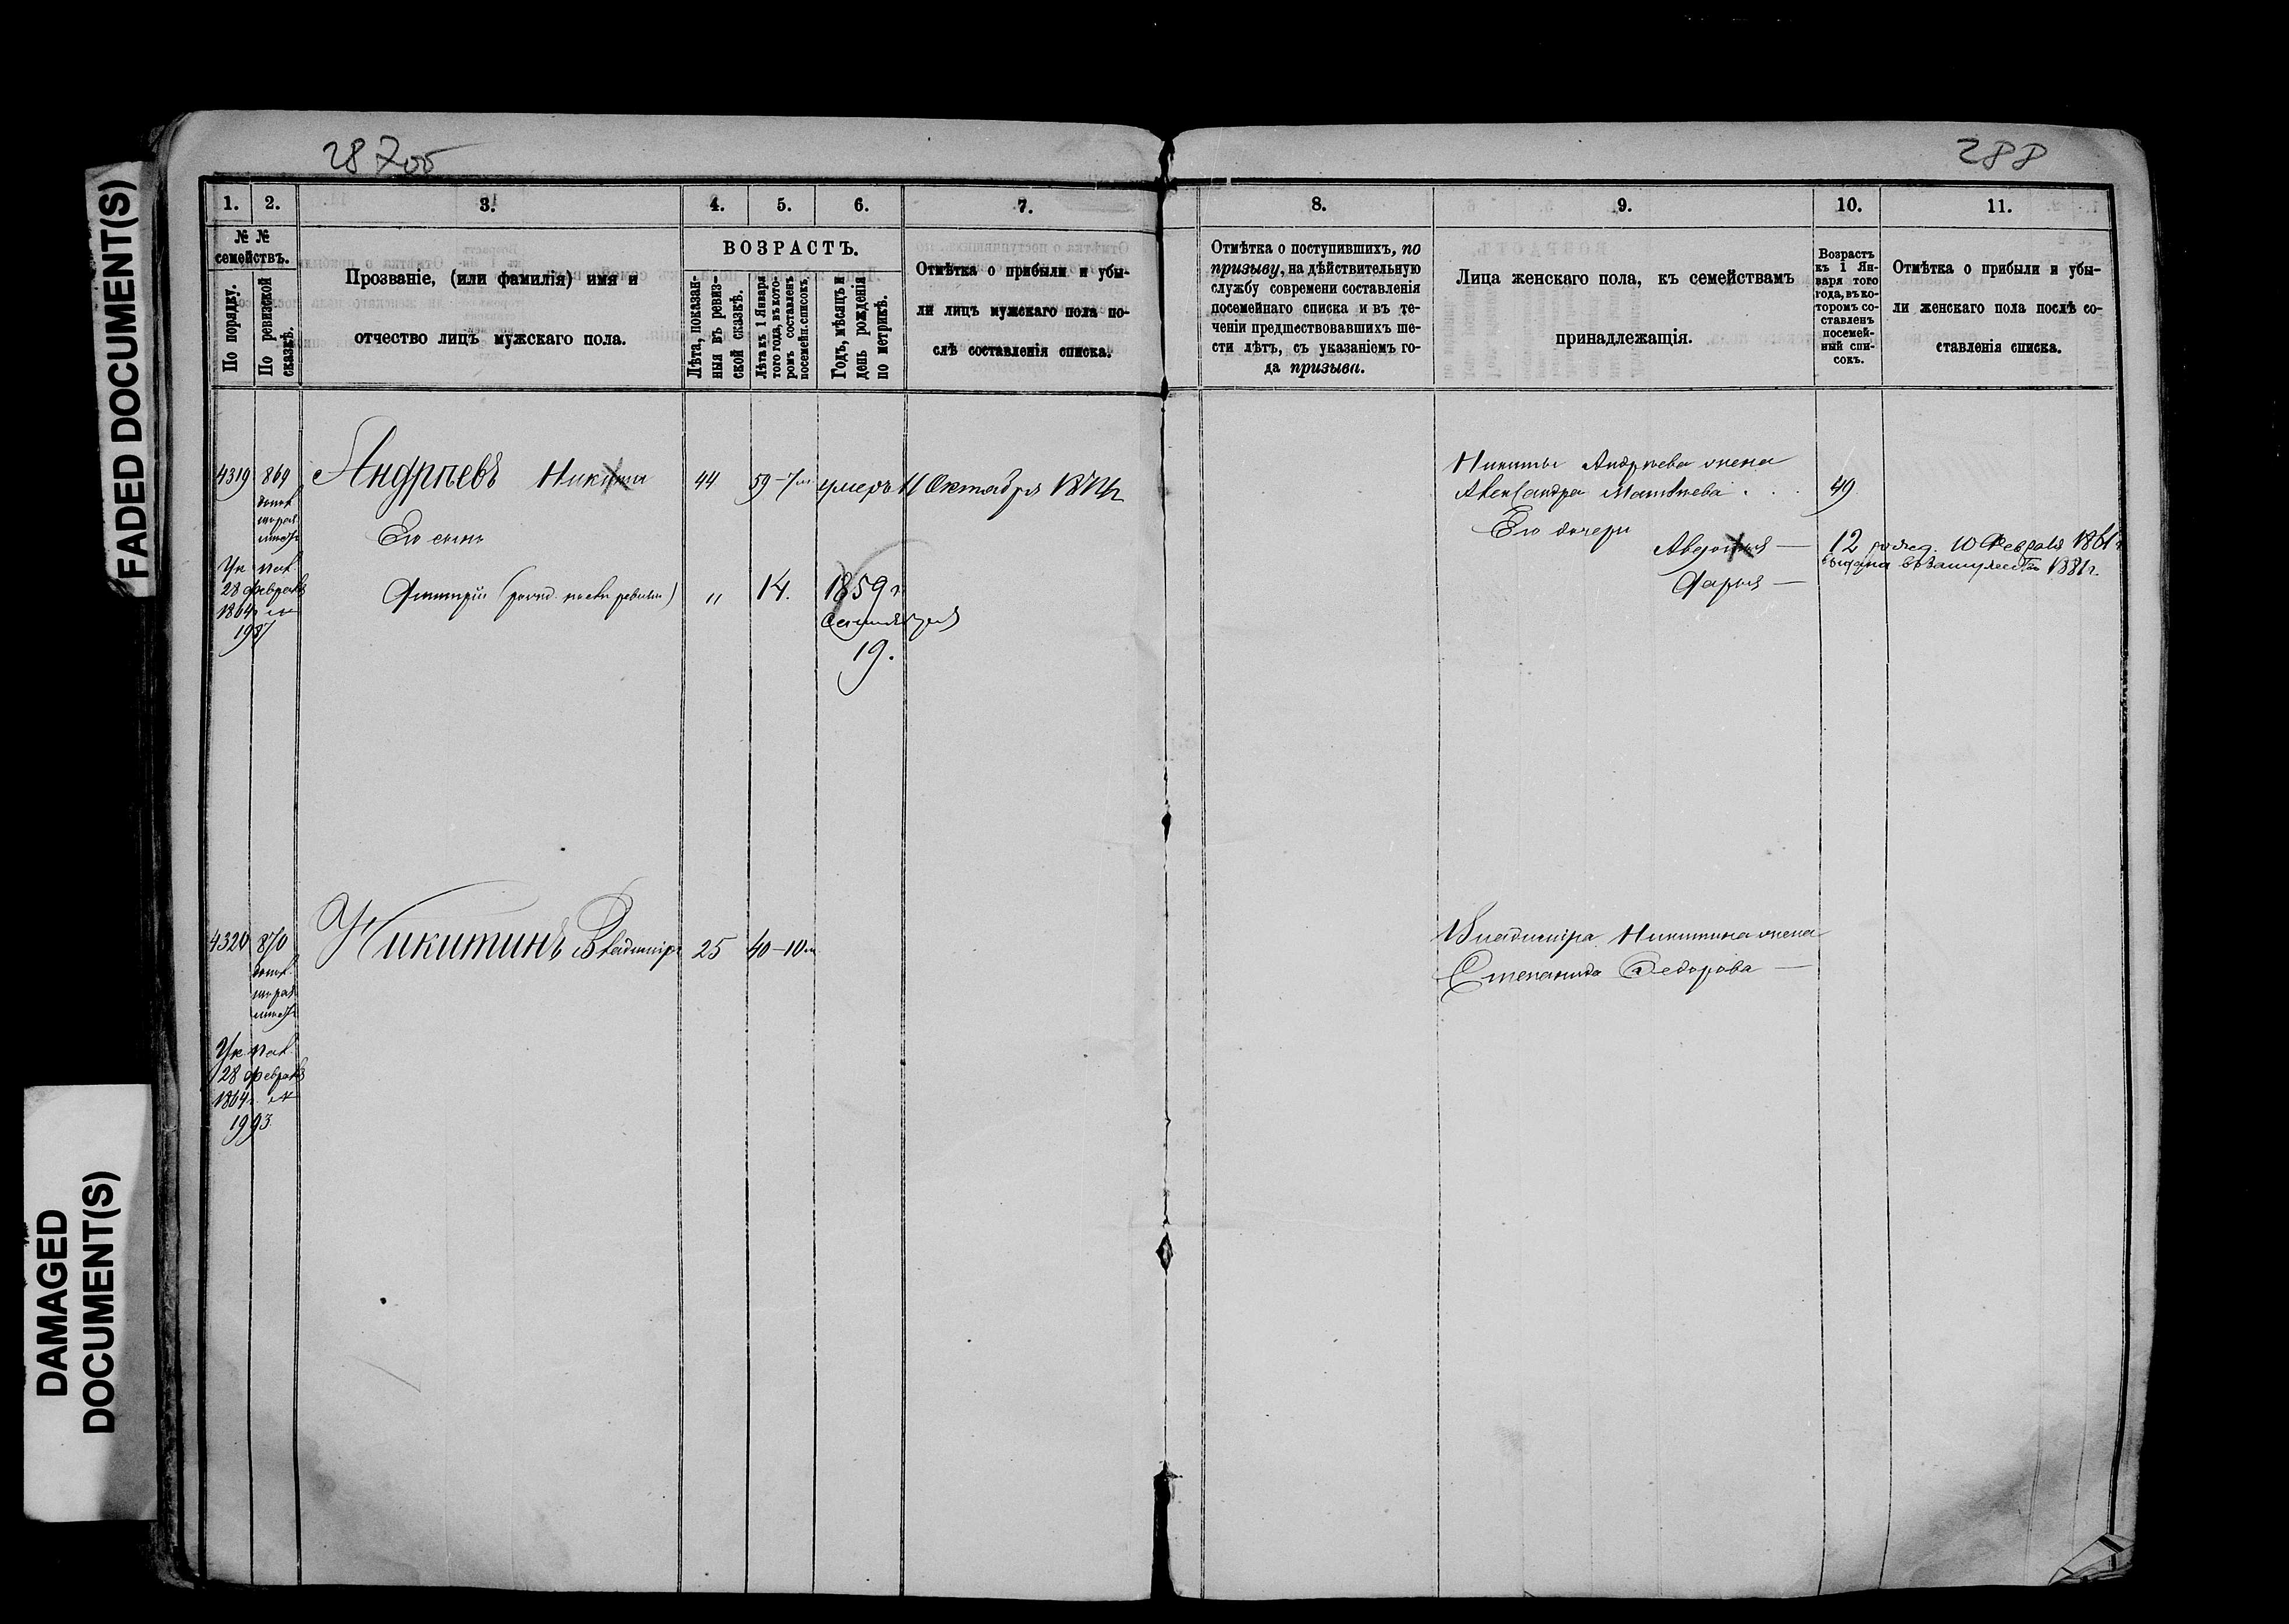 FADED DOCUMENT(S)
DAMAGED
DOCUMENT(S)
287об
1. 2. 3. 4. 5. 6. 7.
№ №
семействъ.
По порядку.
По ревизской
сказкѣ.
Прозваніе, (или фамилія) имя и
отчество лицъ мужскаго пола.
ВОЗРАСТЪ.
Лѣта, показан-
ныя въ ревиз-
ской сказкѣ.
Лѣта къ 1 Января
того года, въ кото-
ромъ составленъ
посемейн. списокъ.
Годъ, мѣсяцъ и
день рожденія
по метрикѣ.
Отмѣтка о прибыли и убы-
ли лицъ мужскаго пола по-
слѣ составленія списка.
4319 869 Андрѣевъ Никита 44 59 умеръ 11 Октября
Его сынъ
Ук
28 февраля
1864
1987
Дмитрій 〃 14. 1859 г
Сентября
19.
4320 870 Никитинъ Владиміръ 25 40
Ук
28 февраля
1864
1993
288
8. 9. 10. 11.
Отмѣтка о поступившихъ, по
призыву, на дѣйствительную
службу современи составленія
посемейнаго списка и въ те-
ченіи предшествовавшихъ ше-
сти лѣтъ, съ указаніемъ го-
да призыва.
Лица женскаго пола, къ семействамъ
принадлежащія.
Возрастъ
къ 1 Ян-
варя того
года, въ ко-
торомъ со-
ставленъ
посемей-
ный спи-
сокъ.
Отмѣтка о прибыли и убы-
ли женскаго пола послѣ со-
ставленія списка.
Никиты Андрѣева жена
Александра Матвѣева . . . 49
Его дочери
Авдотья — 12 рожд. 10 Февраля 1861 г
выдана въ замужество 1881 г.
Дарья —
Владиміра Никитина жена
Степанида Федорова —